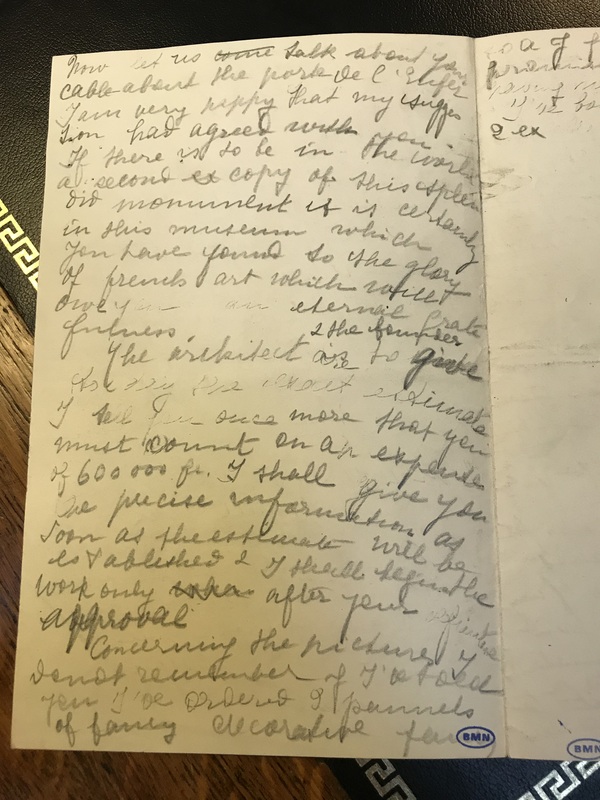 Now let us come talk about your
cable about the porte de l'Enfer
I am very happy that my sugges
tion had agreed with you.
If there is to be in the world
a second ex copy of this splen
did monument it is certainly
in this museum which
you have found to the glory
of french art which will
owe you an eternal grate
fulness.
& the founder
The architect are to give
the exact estimate
I tell you once more that you
must count on an expense
of 600 000 fr. I shall give you
the precise information as
soon as the estimate will be
established & I shall begin the
work only when after your
approval
Concerning the pictures I
do not remember if I've told
you I've ordered 9 pannels
of fancy decorative
BMN
to a
ex
BMN